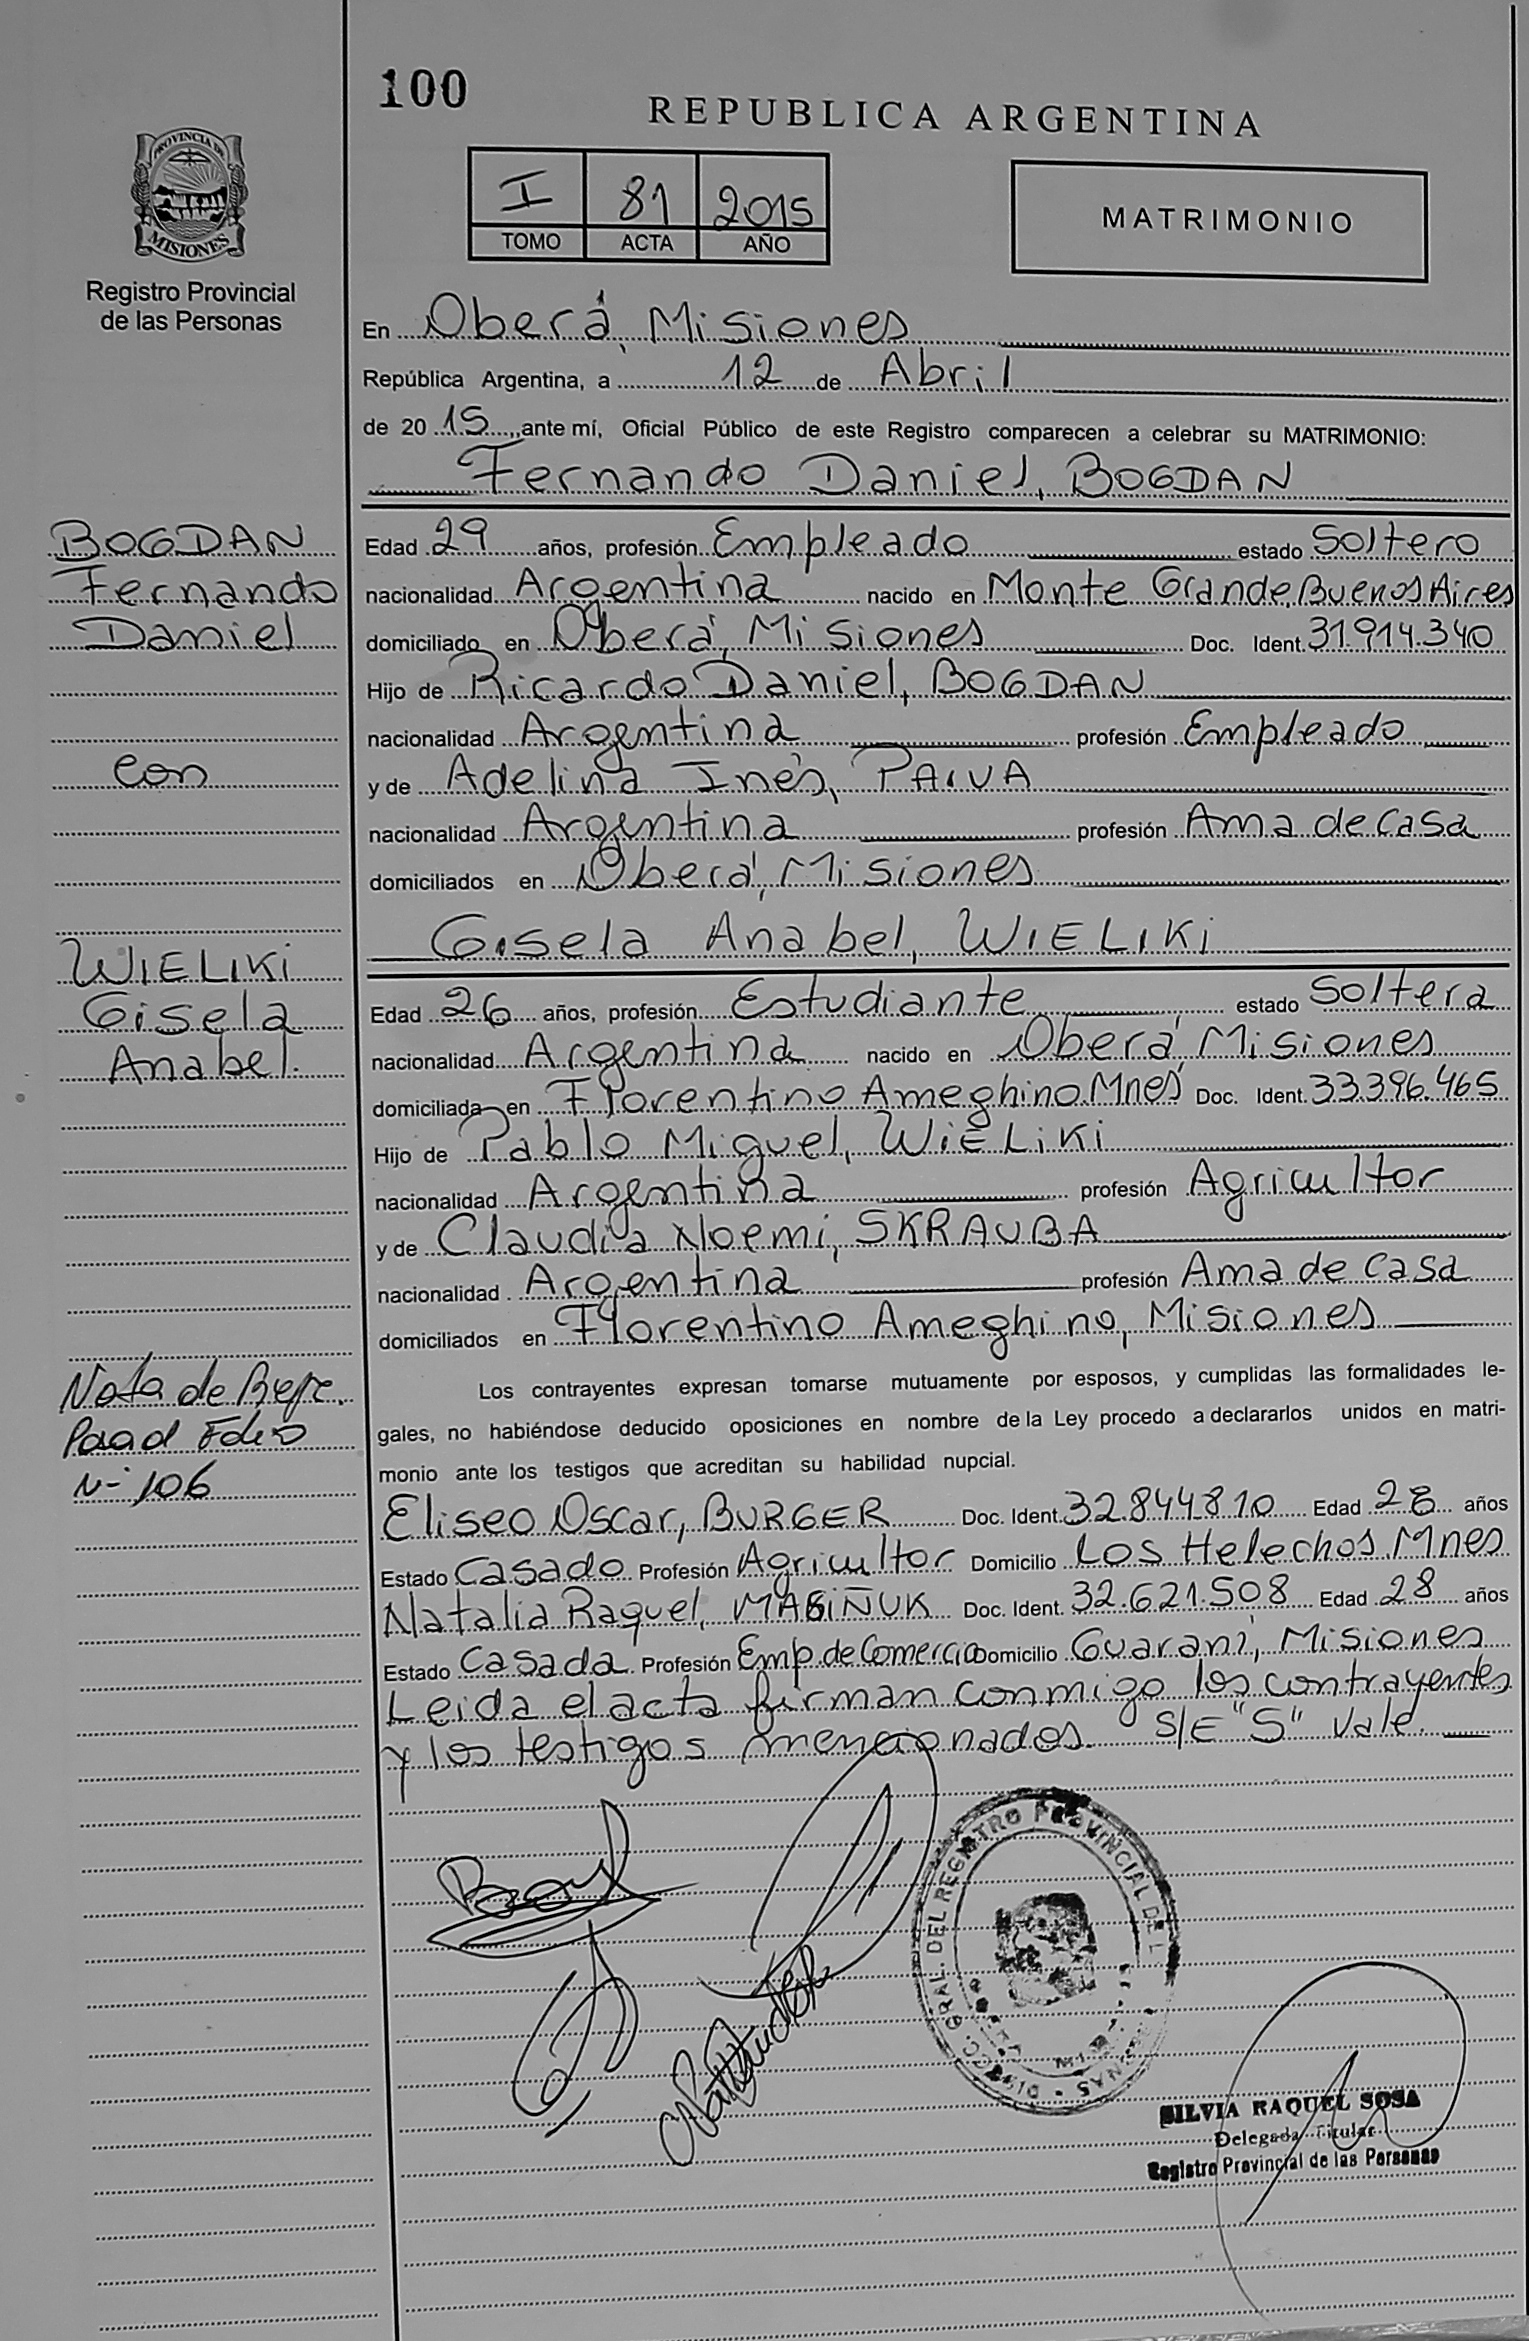 100
REPUBLICA ARGENTINA
PROVINCIA DE
MISIONES
Registro Provincial
de las Personas
I 81 2015
TOMO ACTA AÑO
MATRIMONIO
En Oberá, Misiones
República Argentina, a 12 de Abril
de 20 15, ante mí, Oficial Público de este Registro comparecen a celebrar su MATRIMONIO:
Fernando Daniel, BOGDAN
BOGDAN
Fernando
Daniel
con
WIELIKI
Gisela
Anabel.
Edad 29 años, profesión Empleado estado Soltero
nacionalidad Argentina nacido en Monte Grande, Buenos Aires
domiciliado en Oberá, Misiones Doc. Ident. 31.914.340
Hijo de Ricardo Daniel, BOGDAN
nacionalidad Argentina profesión Empleado
y de Adelina Inés, PAIVA
nacionalidad Argentina profesión Ama de casa
domiciliados en Oberá, Misiones
Gisela Anabel, WIELIKI
Edad 26 años, profesión Estudiante estado Soltera
nacionalidad Argentina nacido en Oberá, Misiones
domiciliada en Florentino Ameghino Mnes Doc. Ident. 33.396.465
Hijo de Pablo Miguel, WIELIKI
nacionalidad Argentina profesión Agricultor
y de Claudia Noemi, SKRAUBA
nacionalidad Argentina profesión Ama de casa
domiciliados en Florentino Ameghino, Misiones
Nota de Refe.
Folio
N- 106
Los contrayentes expresan tomarse mutuamente por esposos, y cumplidas las formalidades le-
gales, no habiéndose deducido oposiciones en nombre de la Ley procedo a declararlos unidos en matri-
monio ante los testigos que acreditan su habilidad nupcial.
Eliseo Oscar, BURGER Doc. Ident. 32.844.810 Edad 28 años
Estado Casado Profesión Agricultor Domicilio Los Helechos, Mnes
Natalia Raquel, Doc. Ident. 32.621.508 Edad 28 años
Estado Casada Profesión Emp. de Comercio Domicilio Guaraní, Misiones
Leida el acta firman conmigo los contrayentes
y los testigos mencionados. S/E "S" Vale.
GRAL. DEL REGISTRO PROVINCIAL DE L
SILVIA RAQUEL SOSA
Delegada Titular
Registro Provincial de las Personas